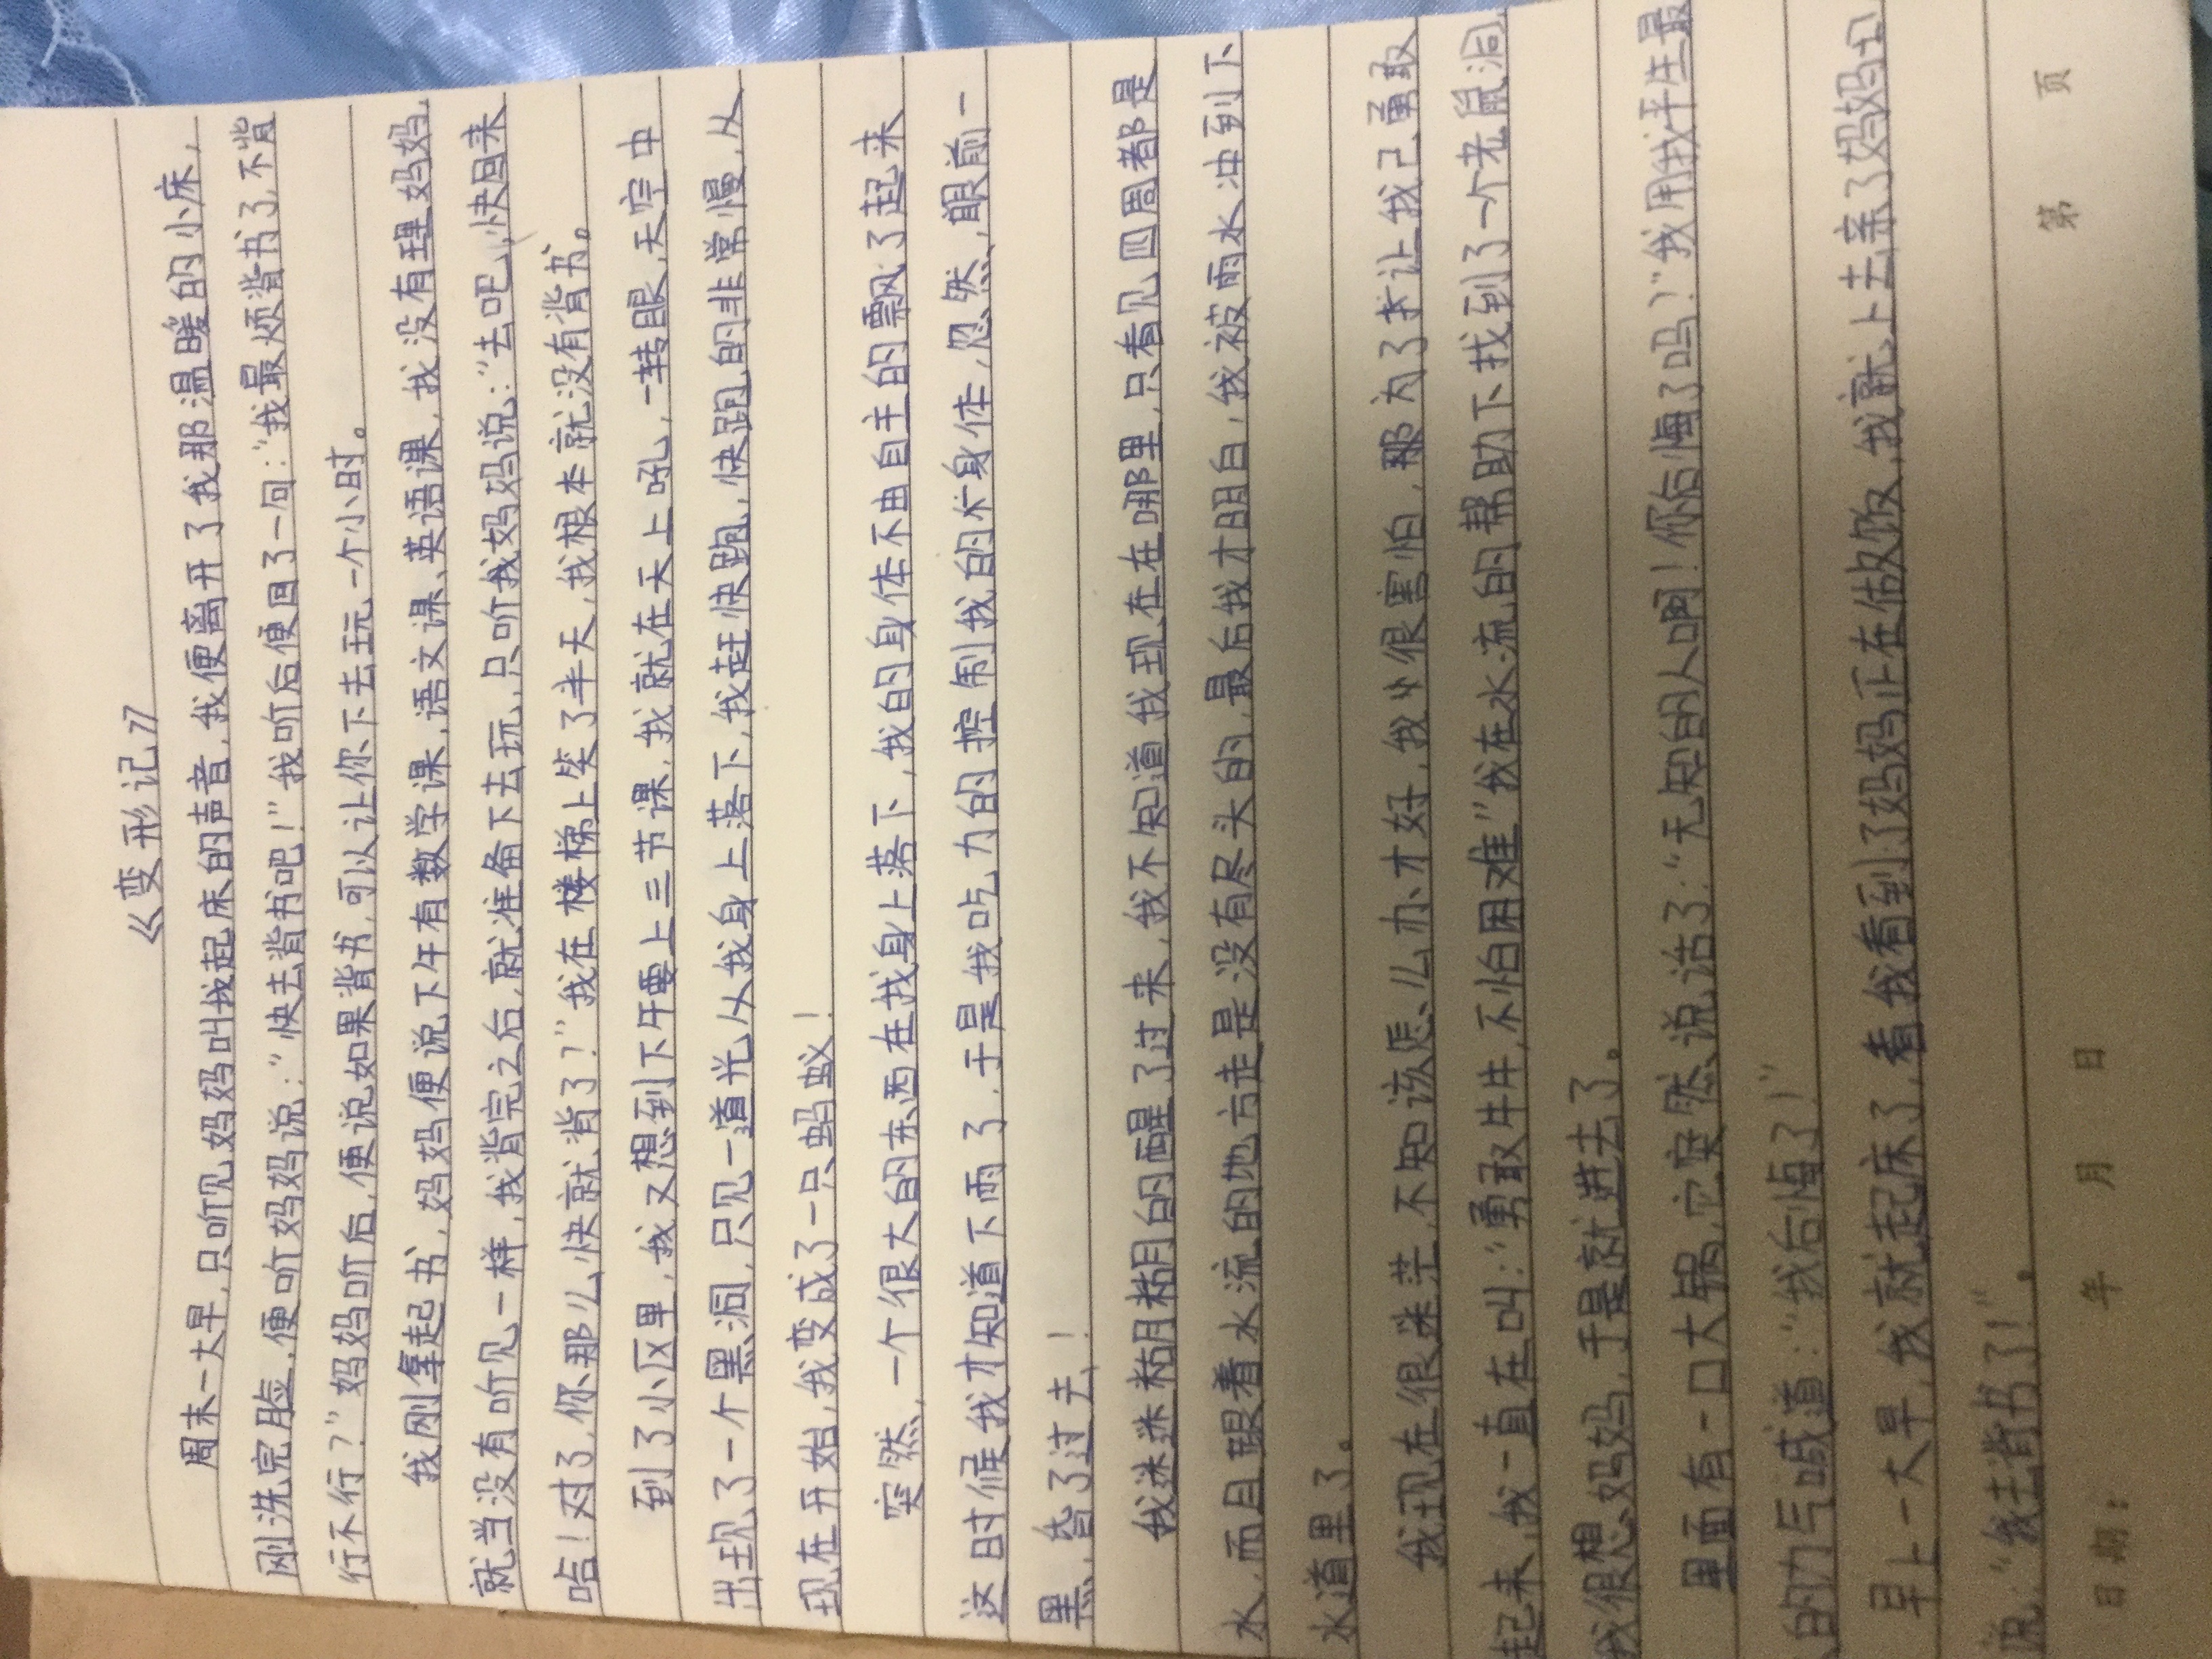 《变形记》
周末一大早,只听见妈妈叫我起床的声音,我便离开了我那温暖的小床,
刚洗完脸,便听妈妈说:“快去背书吧!”我听后便回了一句:“我最烦背书了,不背
行不行?”妈妈听后,便说如果背书,可以让你下去玩一个小时。
我刚拿起书,妈妈便说下午有数学课,语文课、英语课,我没有理妈妈,
就当没有听见一样,我背完之后,就准备下去玩,只听我妈妈说:“去吧,快回来
哈!对了,你那么快就背了?”我在楼梯上笑了半天,我根本就没有背书。
到了小区里,我又想到下午要上三节课,我就在天上吼,一转眼,天空中
出现了一个黑洞,只见一道光从我身上落下,我赶快跑,快跑的非常慢,从
现在开始,我变成了一只蚂蚁!
突然,一个很大的东西在我身上落下,我的身体不由自主的飘了起来
这时候我才知道下雨了,于是我吃力的控制我的身体,忽然,眼前一
黑,昏了过去!
我迷迷粘粘的醒了过来,我不知道我现在在哪里,只看见四周都是
水,而且跟着水流的地方走是没有尽头的,最后我才明白,我被雨水冲到下
水道里了。
我现在很迷茫,不知该怎么办才好,我很害怕,那为了让我己勇敢
起来,我一直在叫:“勇敢牛牛,不怕困难”我在水流的帮助下找到了一个老鼠洞,
我很想妈妈,于是就进去了。
里面有一口大锅,它突然说话了:“无知的人啊!你后悔了吗?”我用我平生最
的力气喊道:“我后悔了!”
早上一大早,我就起床了,看我看到了妈妈正在做饭,我就上去亲了妈妈一口
说:“我去背书了!”。
日期: 年 月 日 第 页